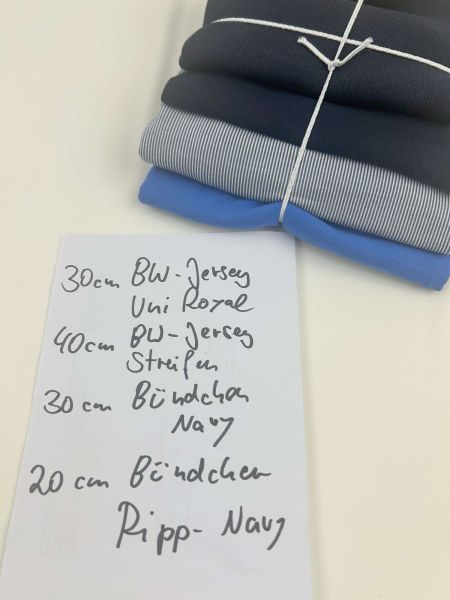 30cm BW-Jersey
Uni Royal
40cm BW-Jersey
Streifen
30 cm Bündchen
Navy
20 cm Bündchen
Ripp- Navy